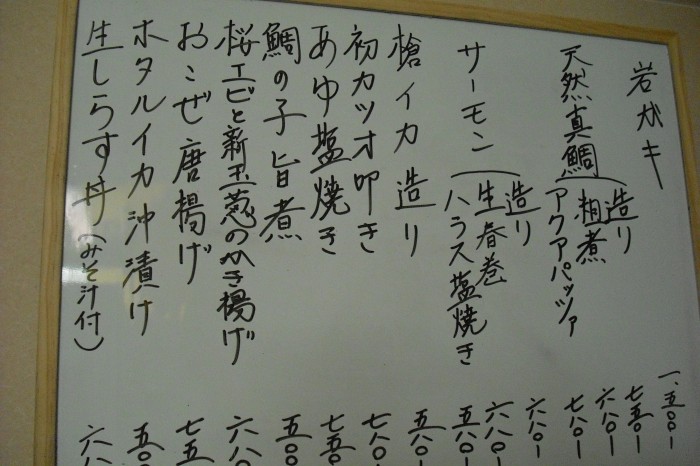 岩ガキ 一、五〇〇-
天然真鯛
造り 七五〇-
粗煮 六八〇-
アクアパッツァ 七八〇-
サーモン
造り 六八〇-
生春巻 六八〇-
ハラス塩焼き 五八〇-
槍イカ造り 五八〇-
初カツオ叩き 七八〇-
あゆ塩焼き 七五〇
鯛の子旨煮 五〇〇
桜エビと新玉葱のかき揚げ 六八〇
おこぜ唐揚げ 七五
ホタルイカ沖漬け 五〇
生しらす丼(みそ汁付) 六八